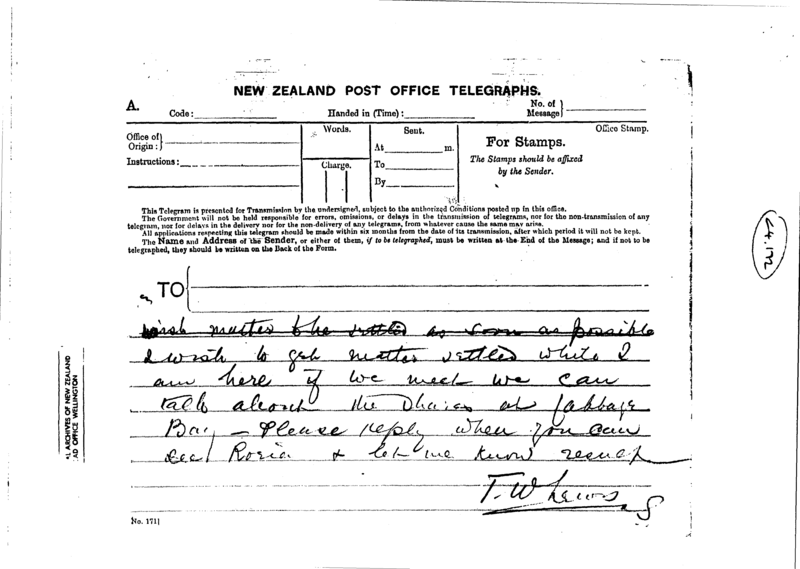 NEW ZEALAND POST OFFICE TELEGRAPHS.
A.
Code:
Handed in (Time):
No. of Message
Office of Origin:
Instructions:
Words.
Charge.
Sent.
At m.
To
By
For Stamps.
The Stamps should be affixed
by the Sender.
Office Stamp.
This Telegram is presented for Transmission by the undersigned, subject to the authorized Conditions posted up in this office.
The Government will not be held responsible for errors, omissions, or delays in the transmission of telegrams, nor for the non-transmission of any
telegram, nor for delays in the delivery nor for the non-delivery of any telegrams, from whatever cause the same may arise.
All applications respecting this telegram should be made within six months from the date of its transmission, after which period it will not be kept.
The Name and Address of the Sender, or either of them, if to be telegraphed, must be written at the End of the Message; and if not to be
telegraphed, they should be written on the Back of the Form.
TO
wish matter to be settled as soon as possible
I wish to get matter settled while I
am here if we meet we can
talk about the Shares at Cabbage
Bay – Please reply when you can
see Roria & let me know result
T. W Lewis
No. 171]
64.172
ARCHIVES OF NEW ZEALAND
AD OFFICE WELLINGTON